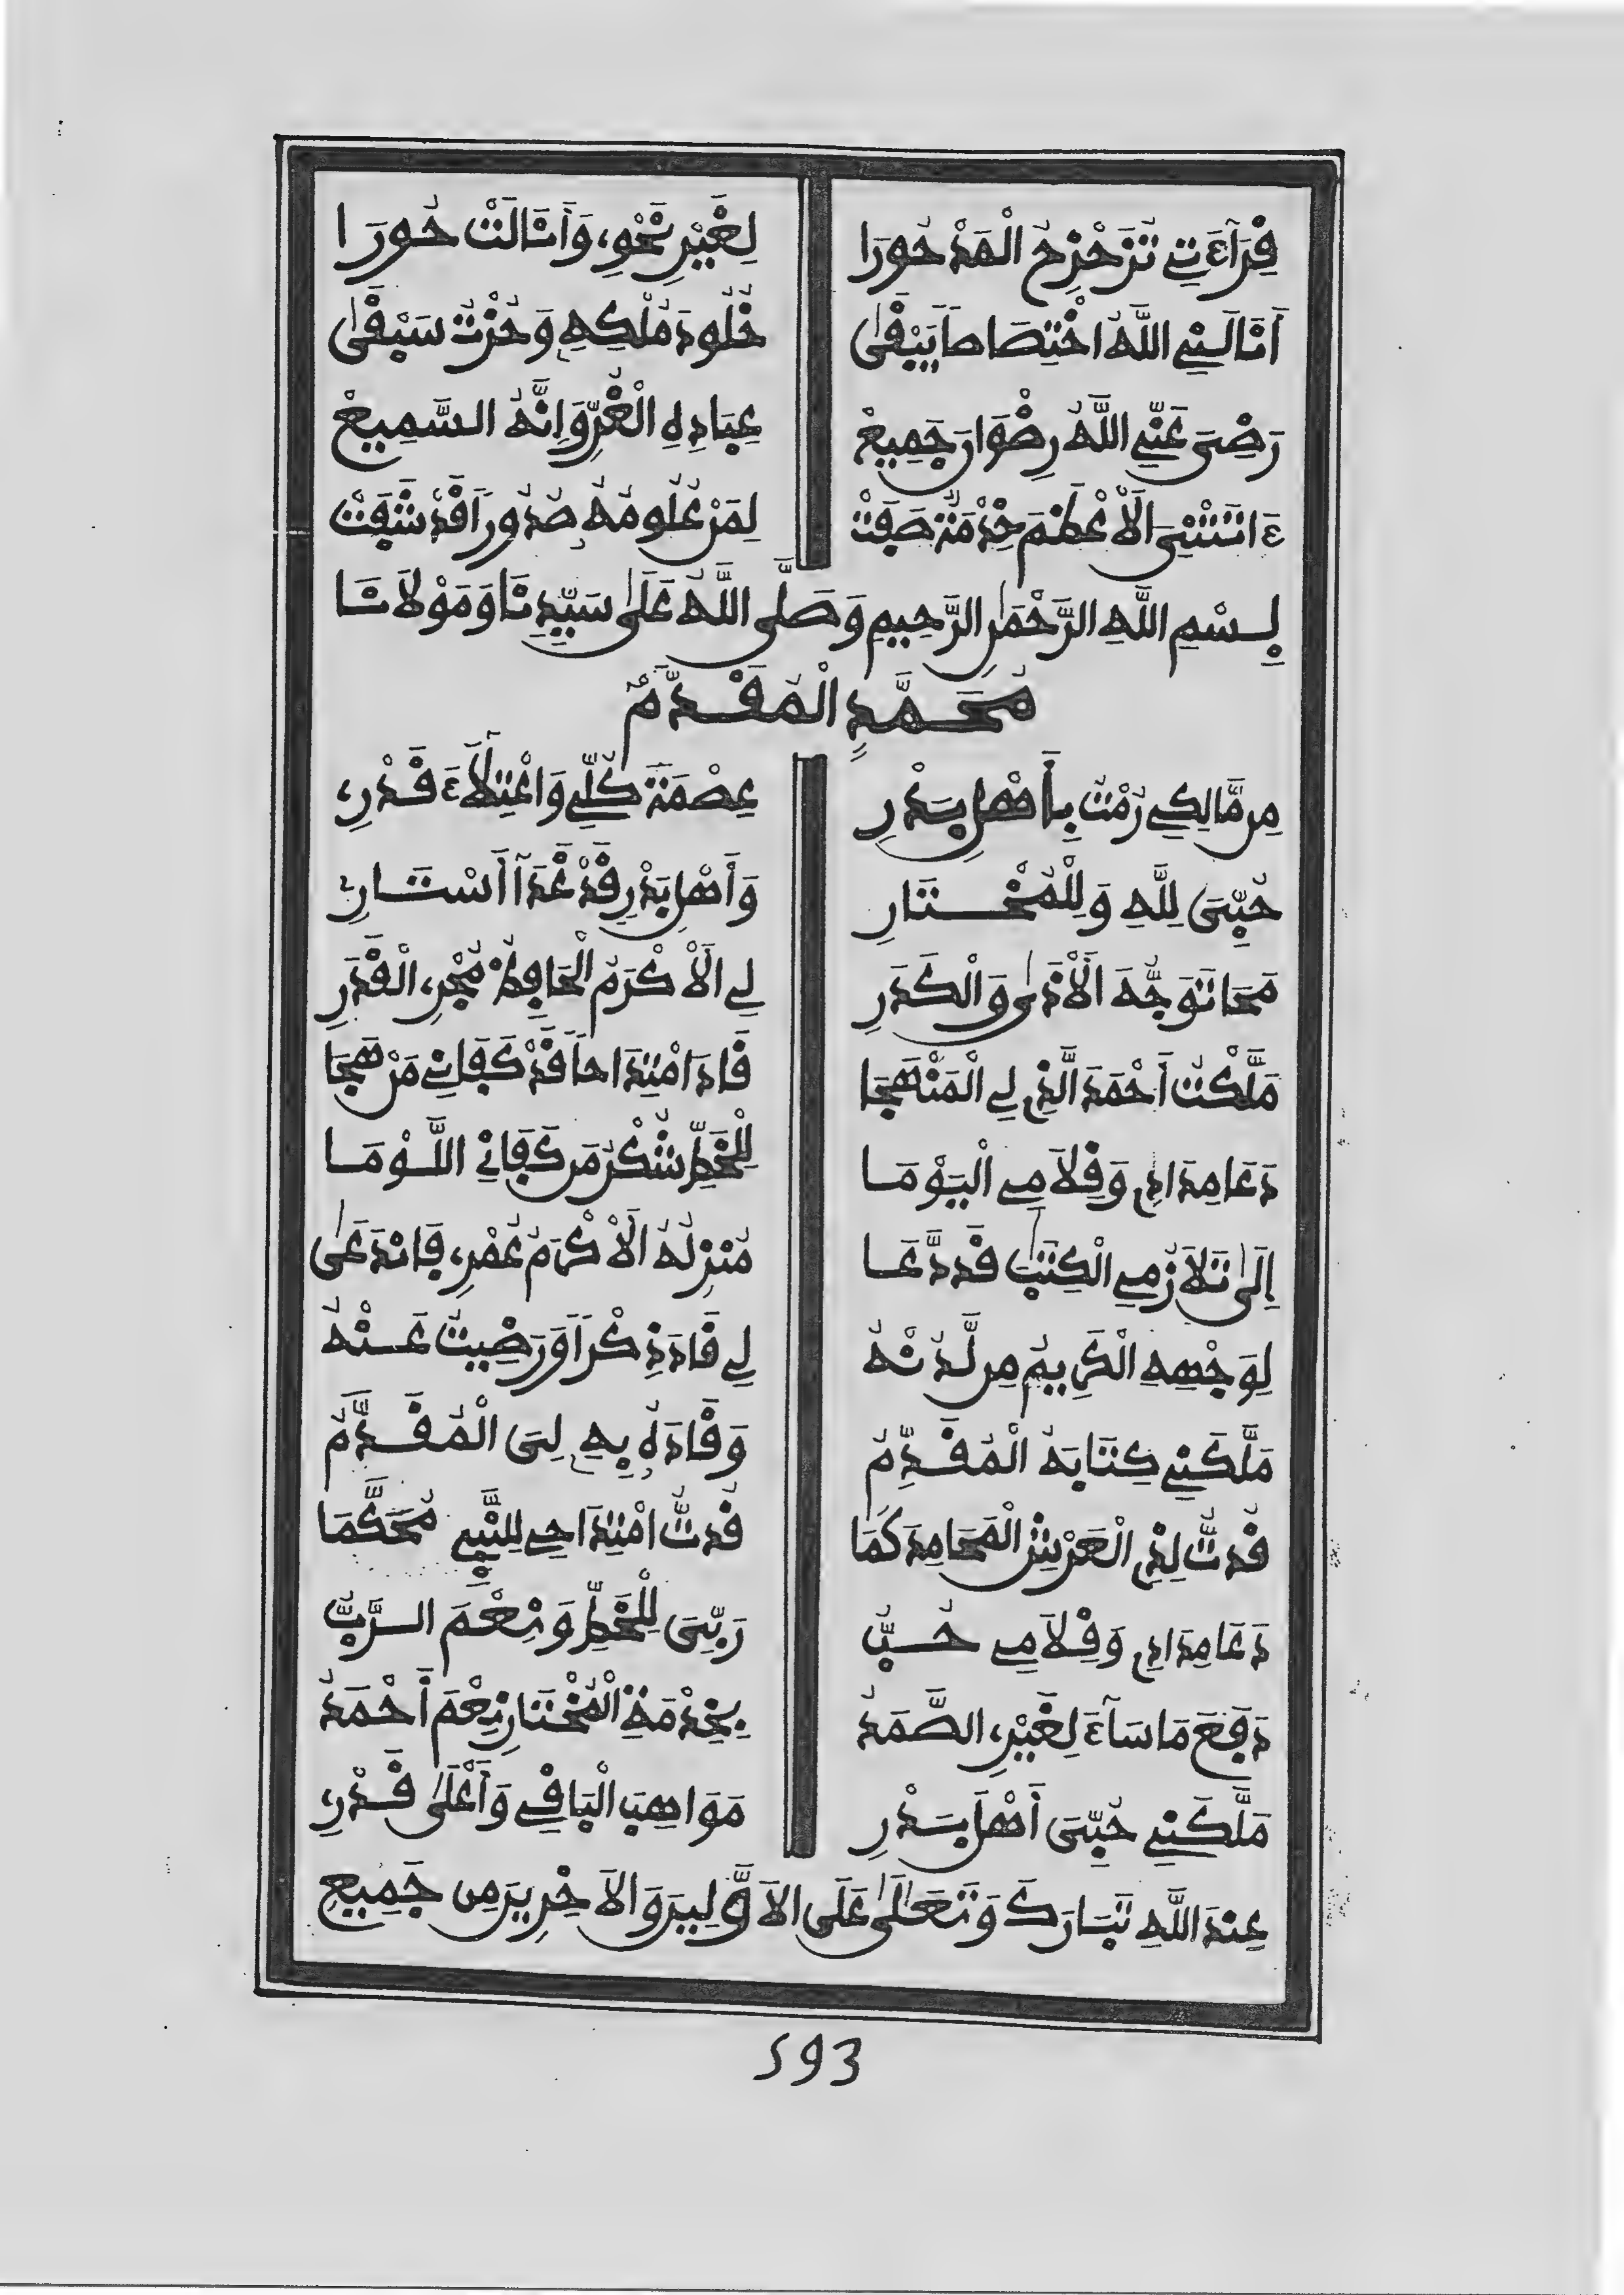 قِرَآءَتِي تُزَحْزِحُ الْمَدْحُورَا لِغَيْرِ نَحْوِي وَأَنَالَتْ حُورَا
أَنَالَنِي اللَّهُ اخْتِصَاصاً يَبْقَى خُلُودَ مُلْكِهِ وَحُزْتُ سَبْقَى
رَضِىَ عَنِّي اللَّهُ رِضْوَانَ جَمِيعْ عِبَادِهِ الْغُرِّ وَإِنَّهُ السَّمِيعْ
ءَانَسَنِىَ الْأَعْظَمَ خِدْمَةٌ صَفَتْ لِمَنْ عُلُومُهُ صُدُوراً قَدْ شَفَتْ
بِسْمِ اللَّهِ الرَّحْمَٰنِ الرَّحِيمِ وَصَلَّى اللَّهُ عَلَىٰ سَيِّدِنَا وَمَوْلَانَا
مُحَمَّدٍ الْمُقَدَّمْ
مِن مَّالِكِي رُمْتُ بِأَهْلِ بَدْرِ عِصْمَةَ كُلِّي وَاعْتِلَاءَ قَدْرِي
حُبِّىَ لِلَّهِ وَلِلْمُخْتَارِ وَأَهْلِ بَدْرٍ قَدْ غَدَا أَسْتَارِي
مَحَا تَوَجُّهَ الْأَذَىٰ وَالْكَدَرِ لِي الْأَكْرَمُ الْحَافِظُ مُجْرِي الْقَدَرِ
مَلَّكْتُ أَحْمَدَ الَّذِي لِي الْمَنْهَجَا قَادَ امْتِدَاحاً قَدْ كَفَانِي مَنْ هَجَا
دَعَا مِدَادِي وَقِلَامِي الْيَوْمَا لِلْخَطِّ شُكْرُ مَن كَفَانِي اللَّوْمَا
إِلَىٰ تَلَازُمِي الْكِتَٰبَ قَد دَّعَا مُنْزِلُهُ الْأَكْرَمُ عُمْرِي فَانْدَعَىٰ
لِوَجْهِهِ الْكَرِيمِ مِن لَّدُنْهُ لِي قَادَ ذِكْراً وَرَضِيتُ عَنْهُ
مَلَّكَنِي كِتَابَهُ الْمُقَدِّمُ وَقَادَهُ بِهِ لِىَ الْمُقَدَّمُ
قُدتُّ لِذِي الْعَرْشِ الْمَحَامِدَ كَمَا قُدتُّ امْتِدَاحِي لِلنَّبِي مُحَكَّمَا
دَعَا مِدَادِي وَقِلَامِي حُبُّ رَبِّىَ لِلْخَطِّ وَنِعْمَ الرَّبُّ
دَفَعَ مَا سَآءَ لِغَيْرِي الصَّمَدُ بِخِدْمَةِ الْمُخْتَارِ نِعْمَ أَحْمَدُ
مَلَّكَنِي حُبِّىَ أَهْلَ بَدْرِ مَوَاهِبَ الْبَاقِي وَأَعْلَىٰ قَدْرِي
عِندَ اللَّهِ تَبَارَكَ وَتَعَٰلَىٰ عَلَى الْأَوَّلِينَ وَالْآخِرِينَ مِن جَمِيعِ
593